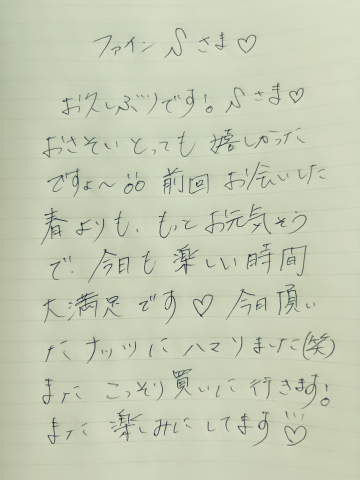 ファイン Sさま♡
お久しぶりです! Sさま♡
おさそいとっても嬉しかった
ですよ〜 前回お会いした
春よりも、もっとお元気そう
で、今日も楽しい時間
大満足です♡ 今日頂い
たナッツにハマりました(笑)
またこっそり買いに行きます!
また楽しみにしてます♡